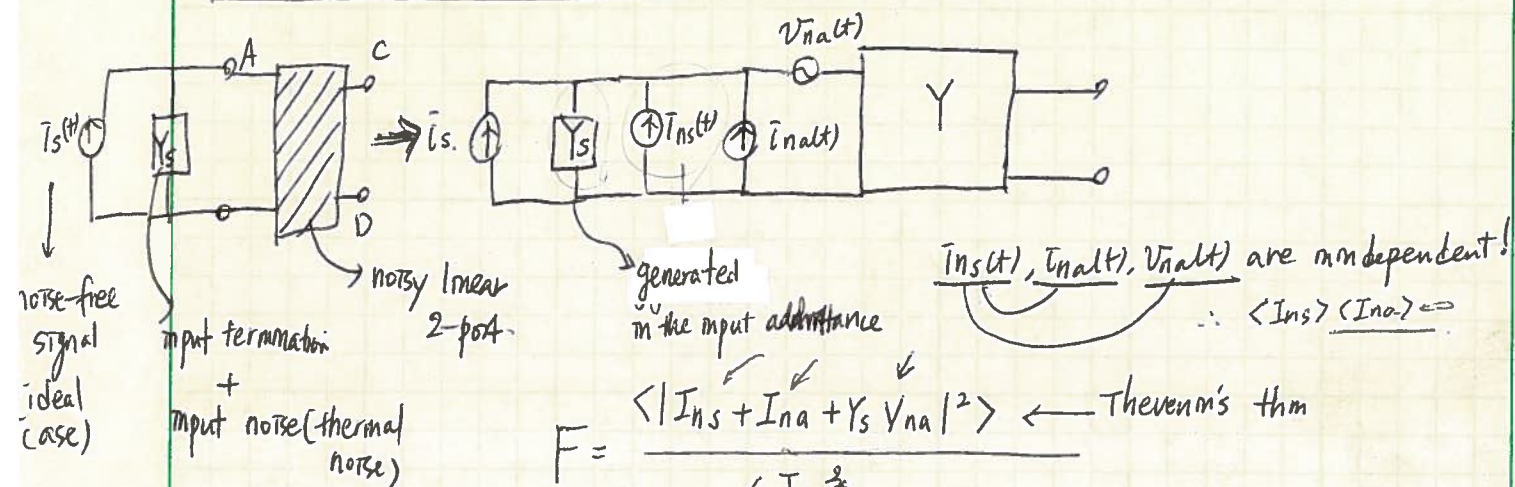 A
C
is(t)
Ys
D
is.
Ys
ins(t)
ina(t)
vna(t)
Y
noise-free
signal
(ideal
case)
input termination
+
input noise (thermal
noise)
noisy linear
2-port.
generated
in the input admittance
ins(t), ina(t), vna(t) are independent!
∴ <Ins> <Ina>
F = <|Ins + Ina + Ys Vna|²> ← Thevenin's thm